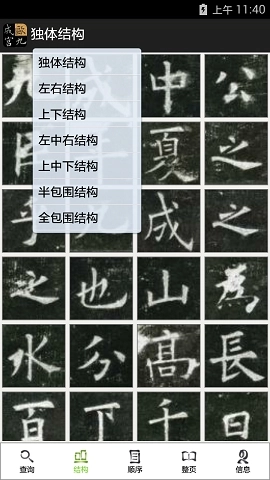 上午 11:40
独体结构
独体结构
左右结构
上下结构
左中右结构
上中下结构
半包围结构
全包围结构
九 成 中 公
夏 之
乎 成 之
之 也 山 為
水 分 高 長
百 下 千 日
查询 结构 顺序 整页 信息